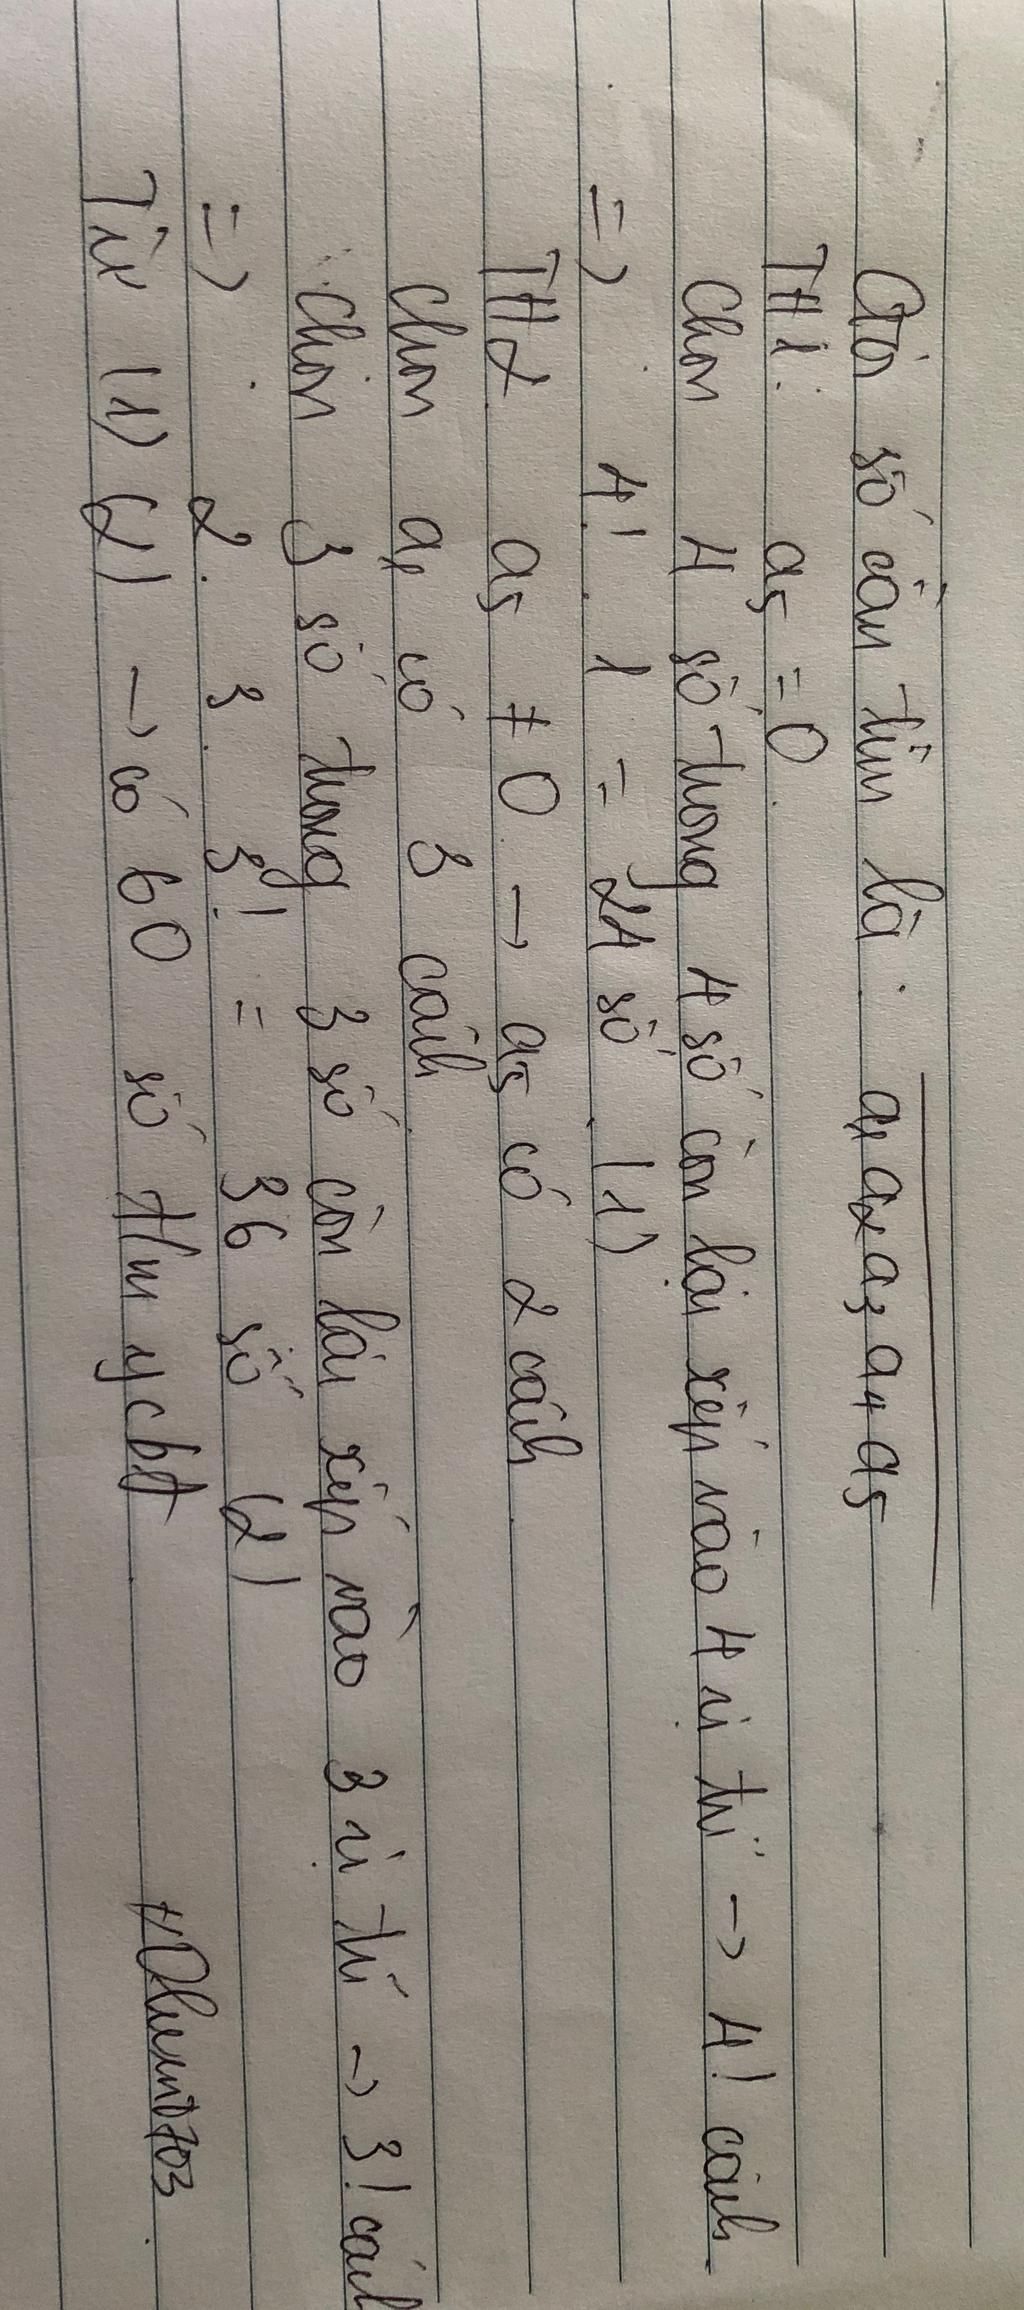 Gọi số cần tìm là : a1 a2 a3 a4 a5
TH1: a5 = 0
Chọn 4 số trong 4 số còn lại xếp vào 4 vị trí → 4! cách
=> 4! . 1 = 24 số (1)
TH2 a5 ≠ 0 → a5 có 2 cách
Chọn a1 có 3 cách
Chọn 3 số trong 3 số còn lại xếp vào 3 vị trí → 3! cách
=> 2 . 3 . 3! = 36 số (2)
Từ (1) (2) → có 60 số t/m ycbt